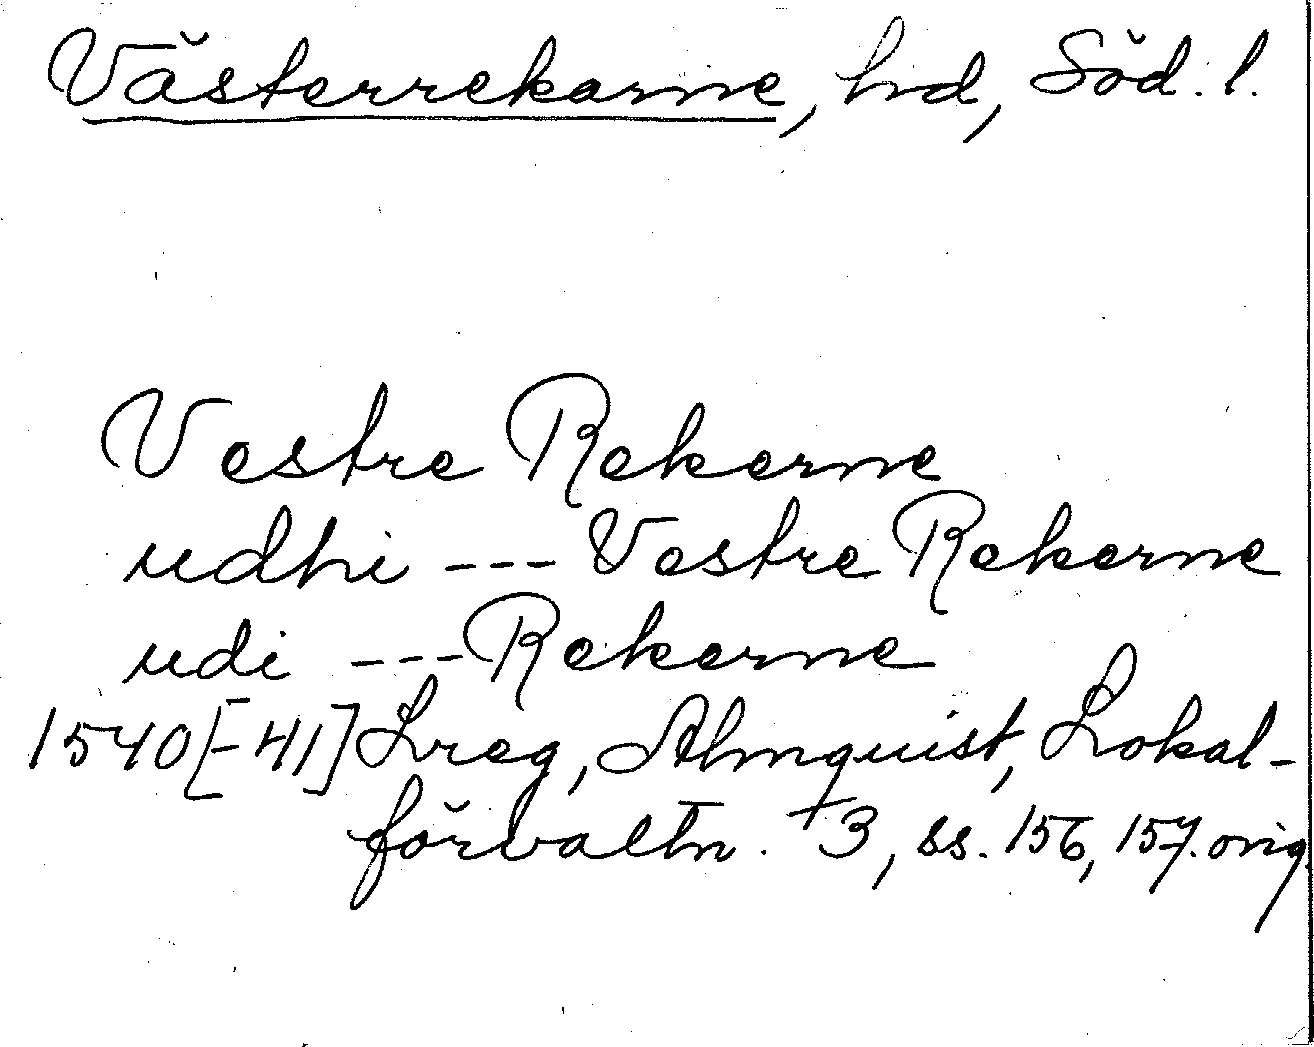 Västerrekarne, hd, Söd. l.
Vestre Rekerne
udhi --- Vestre Rekerne
udi --- Rekerne
1540[-41] Lreg, Almquist, Lokal-
förvaltn. 3, ss. 156, 157. orig.